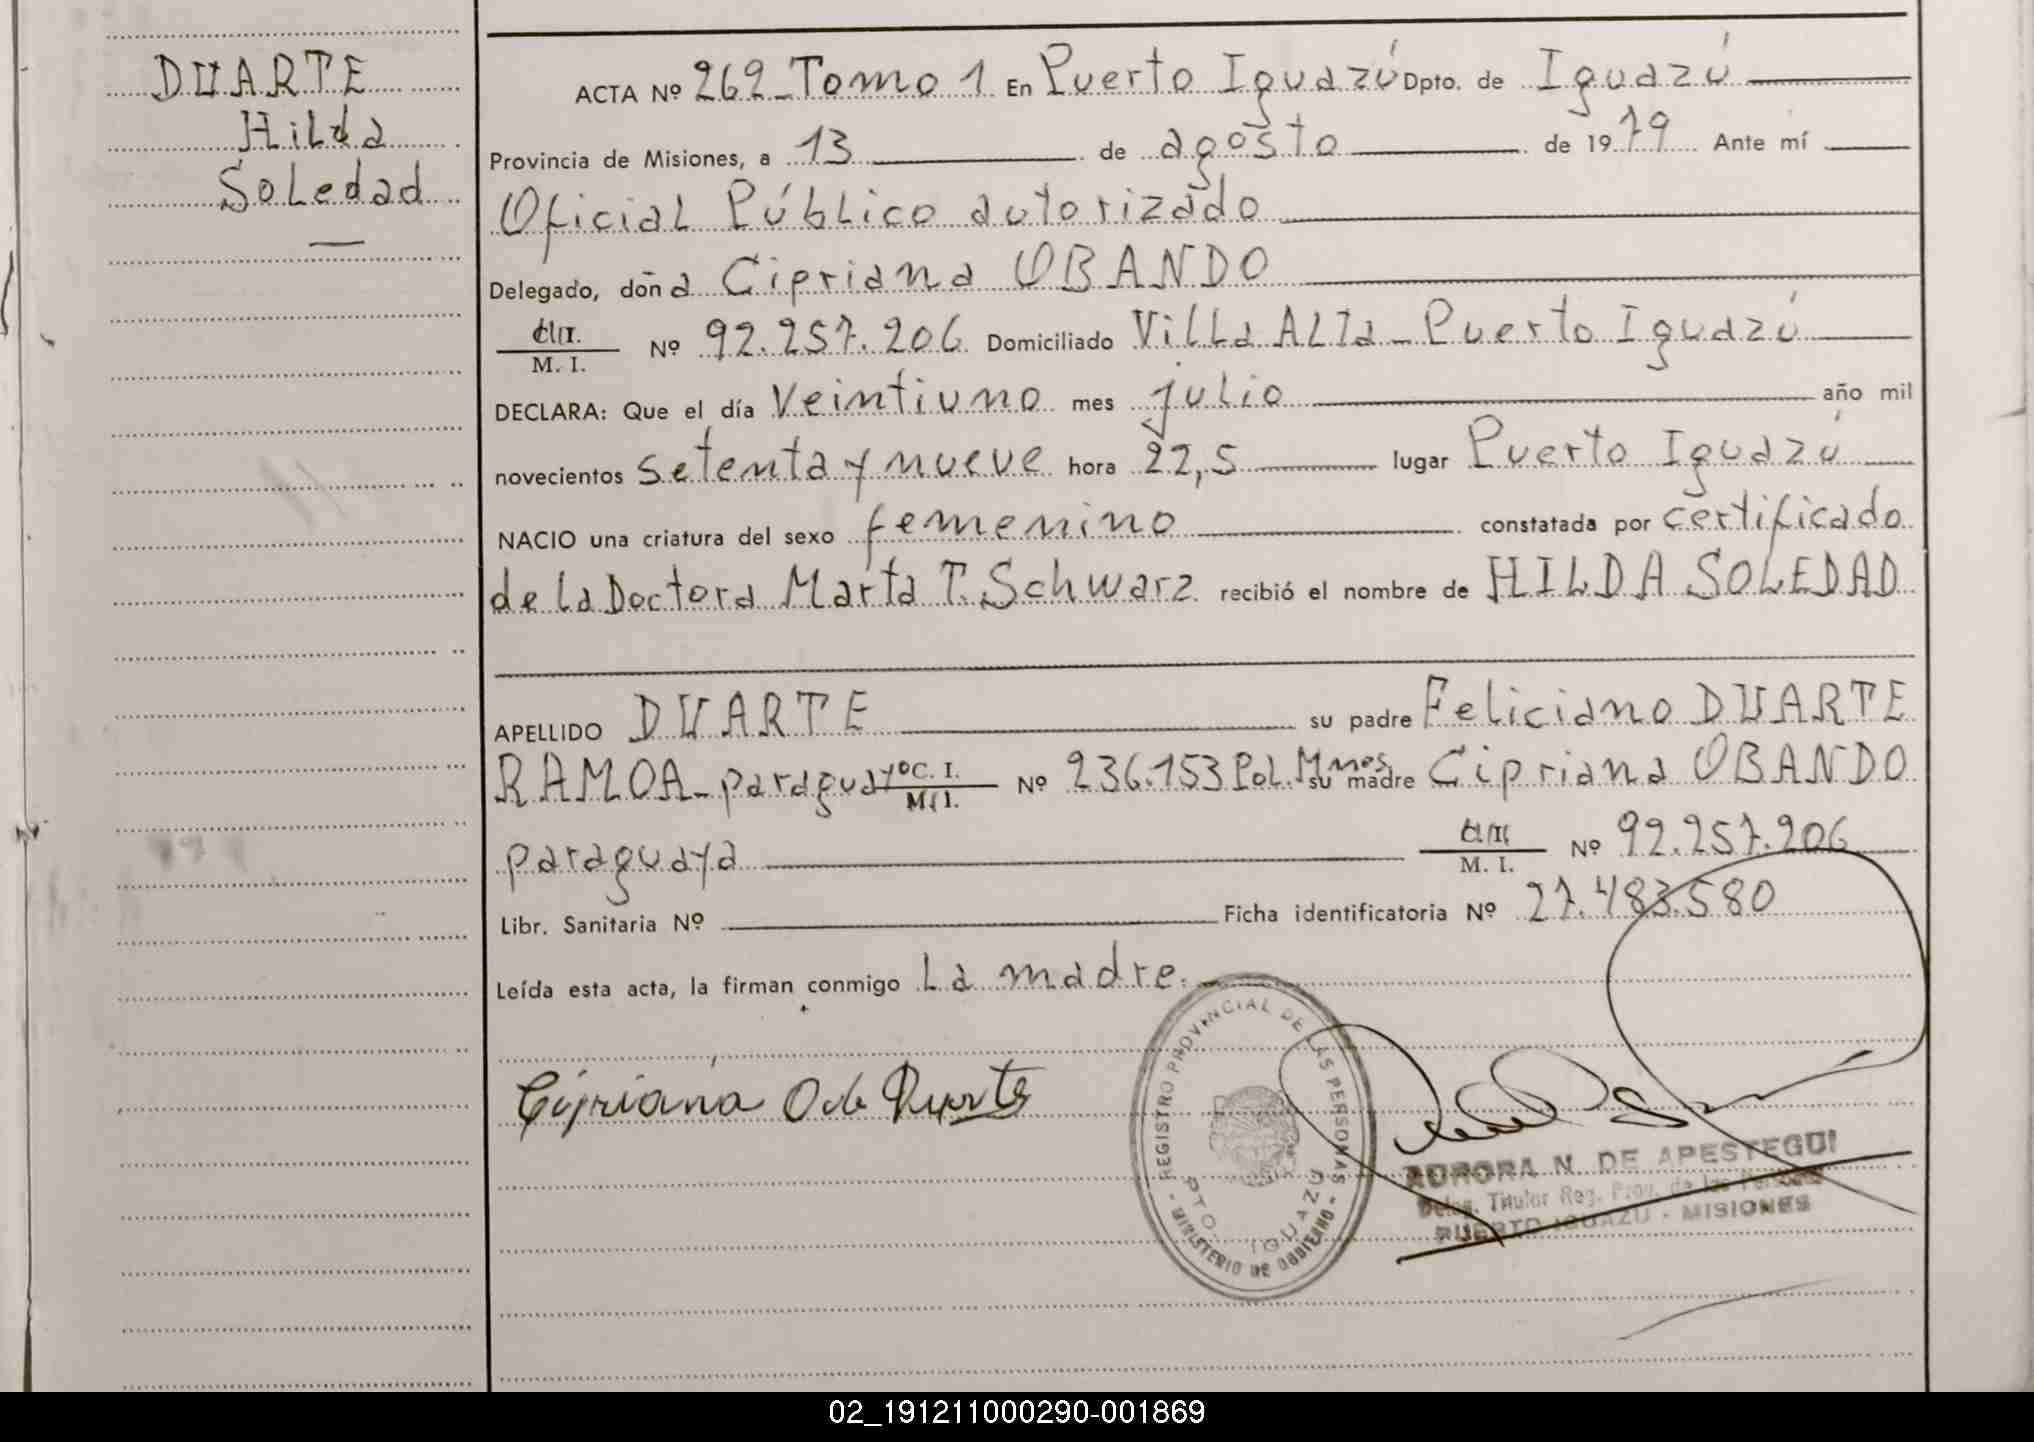 DUARTE
Hilda
Soledad
ACTA Nº 262_Tomo 1 En Puerto Iguazú Dpto. de Iguazú
Provincia de Misiones, a 13 de agosto de 1979 Ante mí
Oficial Público autorizado
Delegado, doña Cipriana OBANDO
C.I. / M. I. Nº 92.257.206 Domiciliado Villa Alta - Puerto Iguazú
DECLARA: Que el día veintiuno mes julio año mil
novecientos setenta y nueve hora 22,5 lugar Puerto Iguazú
NACIO una criatura del sexo femenino constatada por certificado
de la Doctora Marta T. Schwarz recibió el nombre de HILDA SOLEDAD
APELLIDO DUARTE su padre Feliciano DUARTE
RAMOA - paraguayo C. I. / M. I. Nº 236.153 Pol. Mnes. su madre Cipriana OBANDO
paraguaya C.I. / M. I. Nº 92.257.206
Libr. Sanitaria Nº Ficha identificatoria Nº 27.483.580
Leída esta acta, la firman conmigo La madre.
Cipriana O de Duarte
REGISTRO PROVINCIAL DE LAS PERSONAS
PTO. IGUAZU
- MINISTERIO DE GOBIERNO -
AURORA N. DE APESTEGUI
Deleg. Titular Reg. Prov. de las Personas
PUERTO IGUAZU - MISIONES
02_191211000290-001869